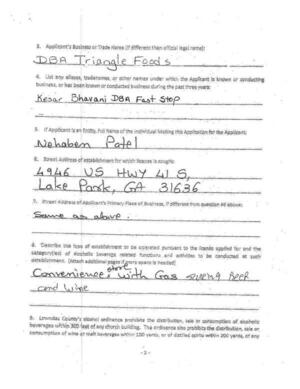 3. Applicant's Business or Trade Name (if different then official legal name):
DBA Triangle Foods
4. List any aliases, tradenames, or other names under which the Applicant is known or conducting
business, or has been known or conducted business during the past three years:
Kesar Bhavani DBA Fast Stop
5. If Applicant is an Entity, Full Name of the Individual Making this Application for the Applicant:
Nehaben Patel
6. Street Address of establishment for which license is sought:
4946 US HWY 41 S,
Lake Park, GA 31636
7. Street Address of Applicant's Primary Place of Business, if different from question #6 above:
Same as above.
8. Describe the type of establishment to be operated pursuant to the license applied for and the
category(ies) of Alcoholic beverage related functions and activities to be conducted at such
establishment. (Attach additional pages if more space is needed)
Convenience store with Gas Beer
and wine
9. Lowndes County's alcohol ordinance prohibits the distribution, sale or consumption of alcoholic
beverages within 300 feet of any church building. The ordinance also prohibits the distribution, sale or
consumption of wine or malt beverages within 100 yards, or of distilled spirits within 200 yards, of any
- 2 -